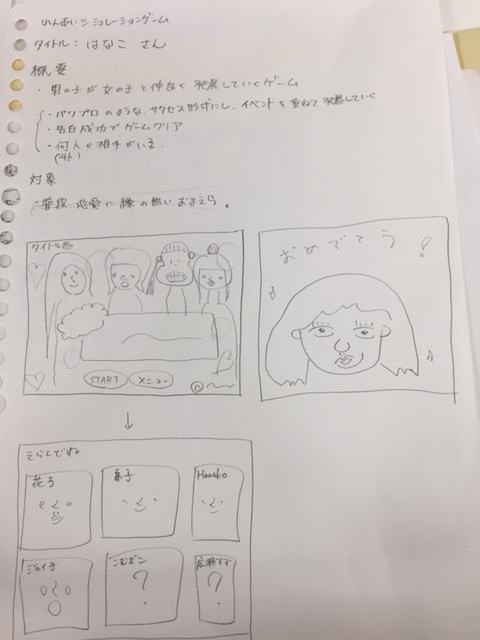 れんあいシミュレーションゲーム
タイトル：はなこ さん
概要
・男の子が女の子と仲良く発展していくゲーム
・パワプロのような、サクセス形式にし、イベントを重ねて発展していく
・告白成功でゲームクリア
・何人か相手がいる。
(4人)
対象
・普段 恋愛に縁の無い おまえら。
タイトル画
START メニュー
おめでとう!
えらんでね
花子
Hanako
ジャイ子
こむぞー
広瀬すず